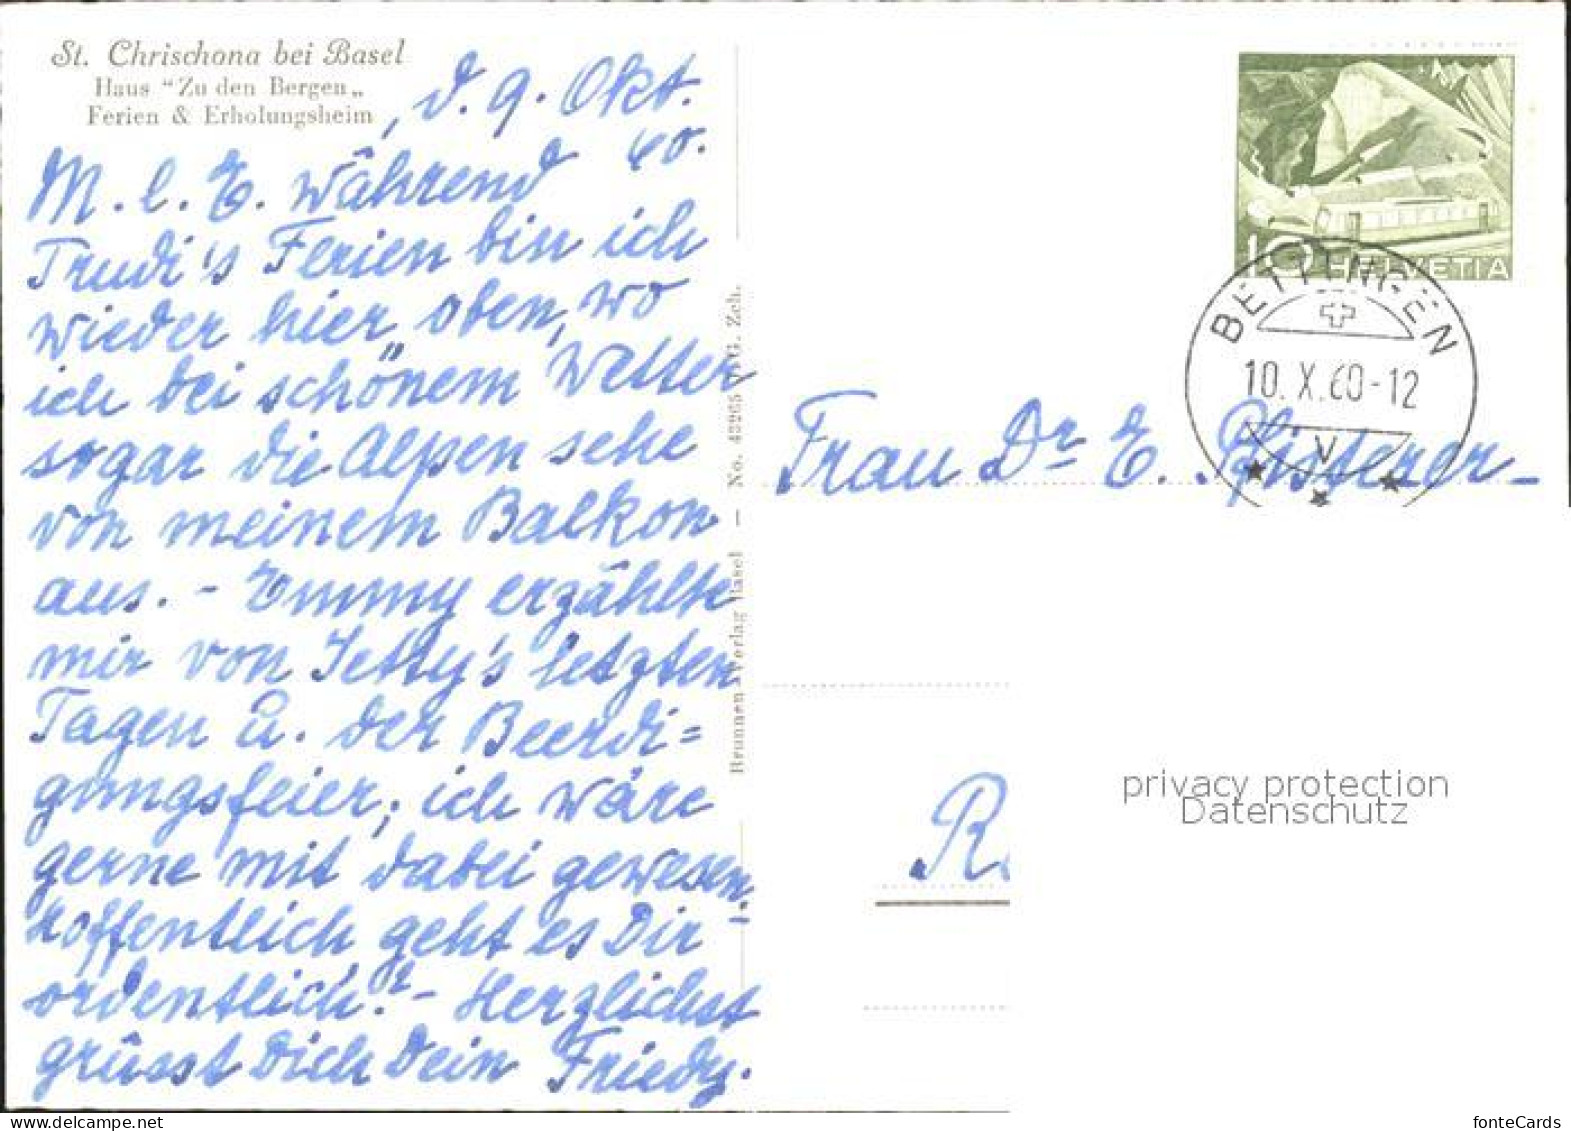 St. Chrischona bei Basel
Haus "Zu den Bergen"
Ferien & Erholungsheim
, d. 9. Okt.
60.
M. l. E. Während
Trudi's Ferien bin ich
wieder hier oben, wo
ich bei schönem Wetter
sogar die Alpen sehe
von meinem Balkon
aus. - Emmy erzählte
mir von Jetty's letzten
Tagen u. der Beerdi=
gungsfeier; ich wäre
gerne mit dabei gewesen.
Hoffentlich geht es Dir
ordentlich? - Herzlichst
grüsst Dich Dein Friedy.
Brunnen-Verlag Basel — No. 43265 G. Zch.
10 HELVETIA
BETTINGEN
10.X.60-12
V
Frau Dr E. Pfisterer-
R.
privacy protection
Datenschutz
fonteCards